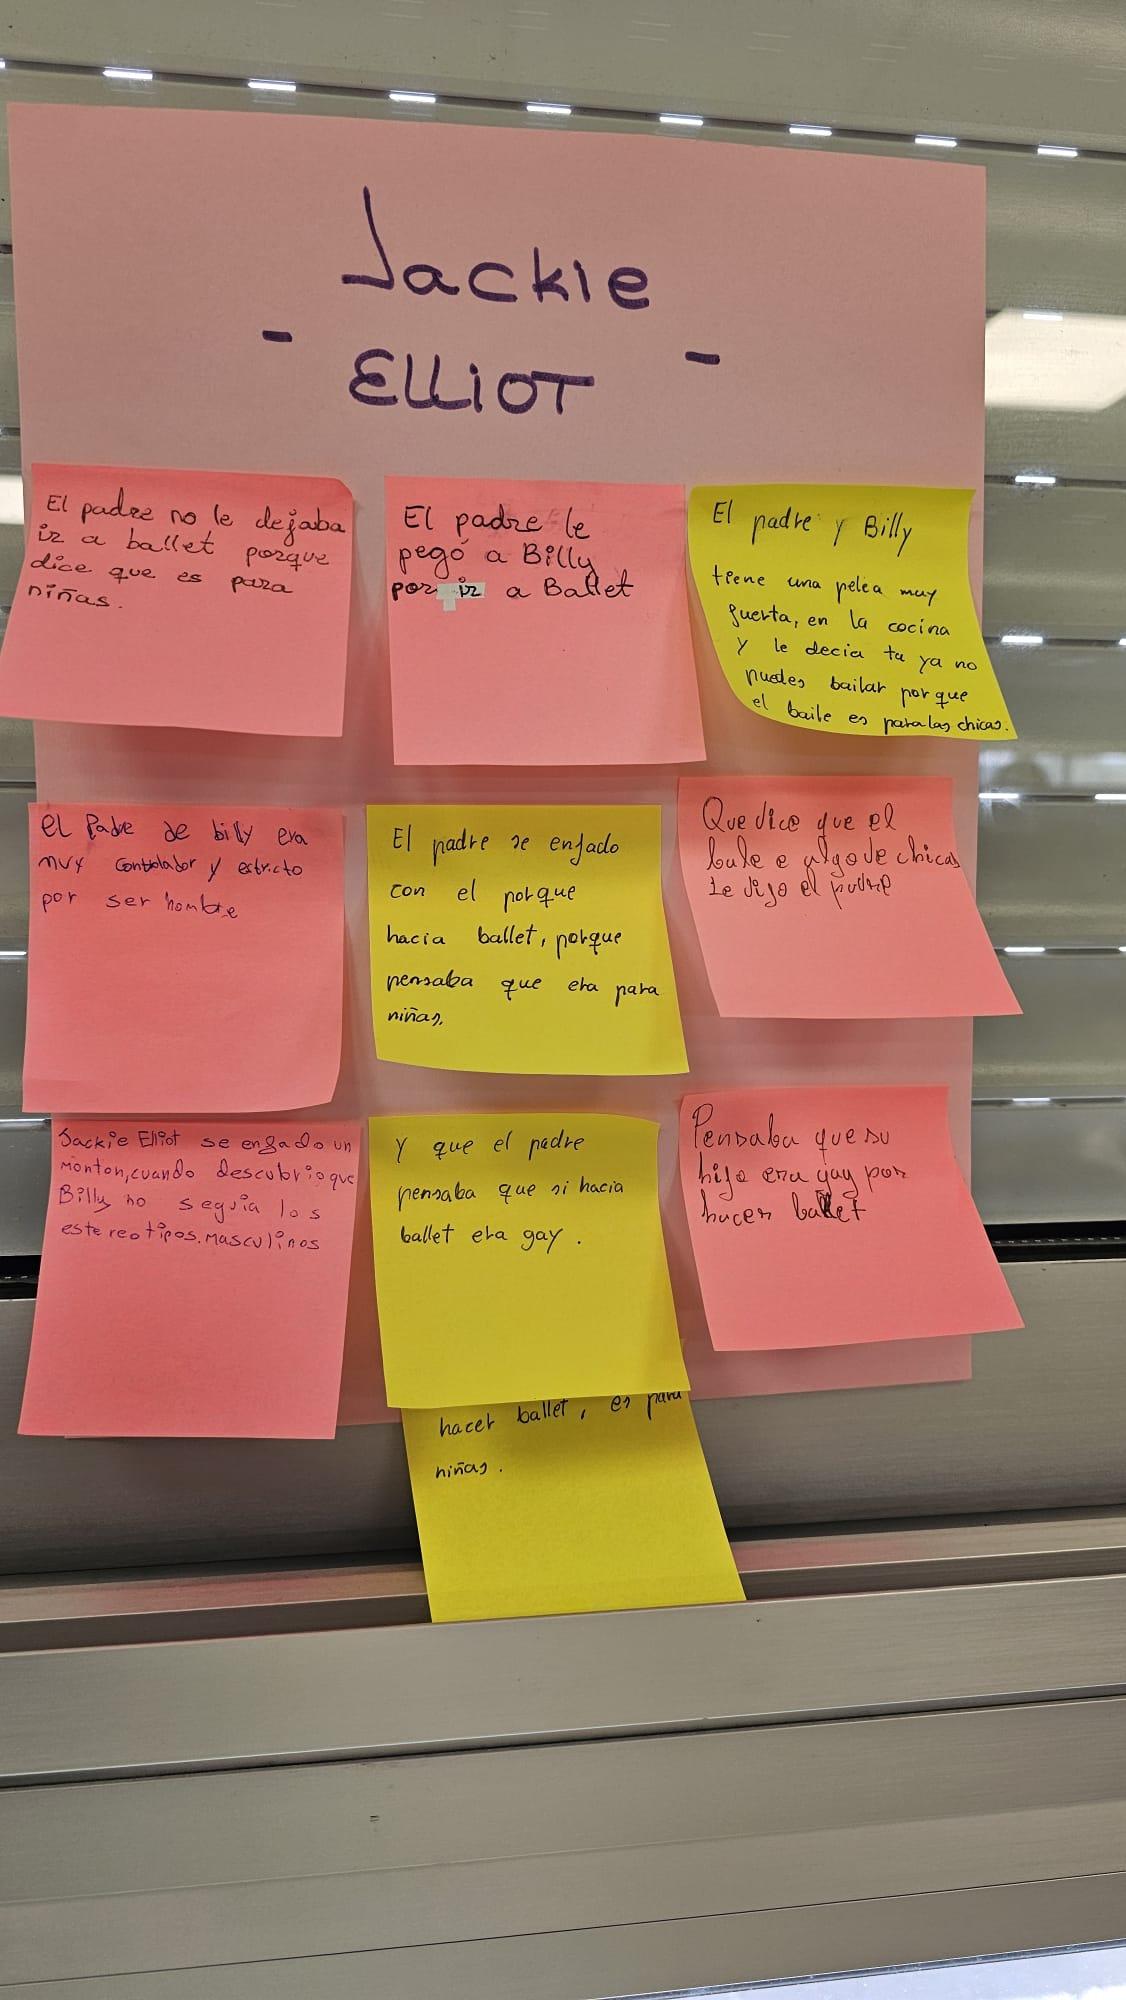 Jackie
- Elliot -
El padre no le dejaba
ir a ballet porque
dice que es para
niñas.
El padre le
pegó a Billy
por ir a Ballet
El padre y Billy
tiene una pelea muy
fuerta, en la cocina
y le decia tu ya no
puedes bailar porque
el baile es para las chicas.
El Padre de billy era
muy controlador y estricto
por ser hombre
El padre se enfado
con el porque
hacia ballet, porque
pensaba que era para
niñas.
Que dice que el
baile e algo de chicas
Le dijo el padre
Jackie Elliot se enfado un
monton, cuando descubrio que
Billy no seguia los
estereotipos. masculinos
Y que el padre
pensaba que si hacia
ballet era gay.
Pensaba que su
hijo era gay por
hacer ballet
hacer ballet, es para
niñas.